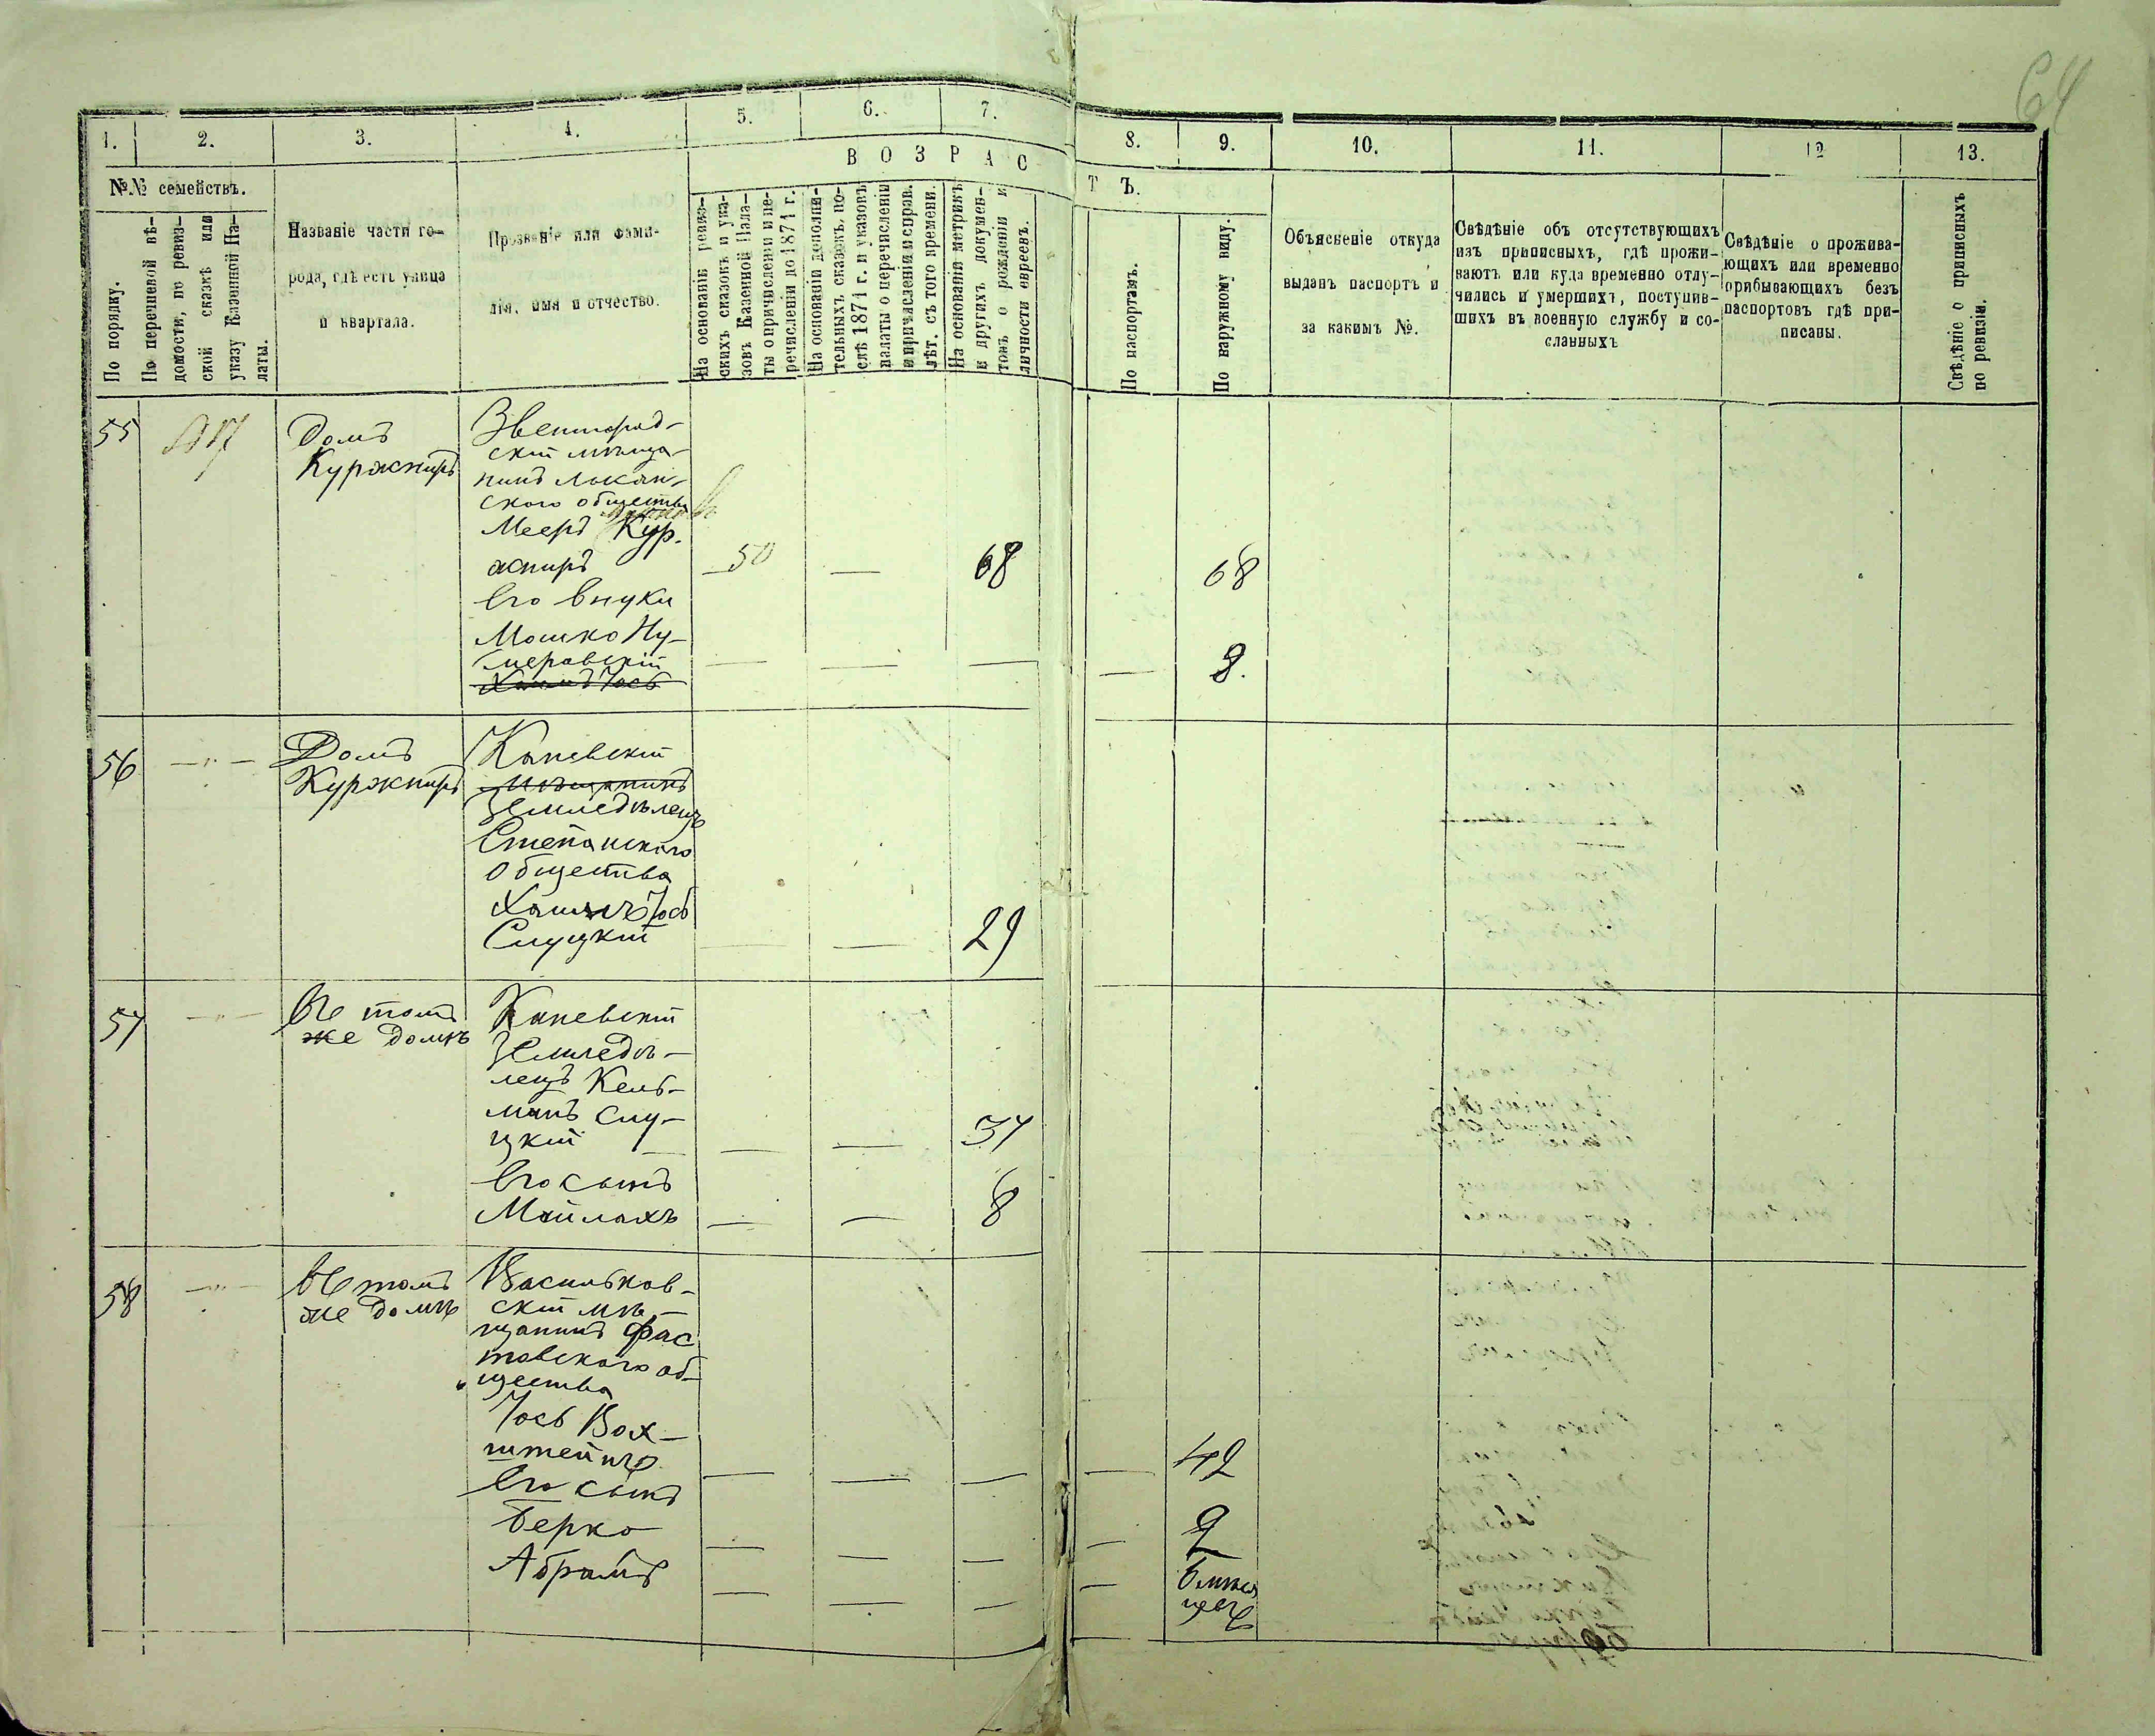 64
1. 2. 3. 4. 5. 6. 7. 8. 9. 10. 11. 12 13.
№№ семействъ.
По порядку.
По перечневой вѣ-
домости, по ревиз-
ской сказкѣ или
указу Казенной Па-
латы.
Названіе части го-
рода, гдѣ есть улица
и квартала.
Прозваніе или фами-
лія, имя и отчество.
ВОЗРАСТЪ.
На основаніи ревиз-
скихъ сказокъ и ука-
зовъ Казенной Пала-
ты о причисленіи и пе-
речисленіи до 1871 г.
На основаніи дополни-
тельныхъ сказокъ, по-
слѣ 1871 г. и указовъ
палаты о перечисленіи
и причисленіи и справ.
лѣт. съ того времени.
На основаніи метрикъ
и другихъ докумен-
товъ о рожденіи и
личности евреевъ.
По паспортамъ.
По наружному виду.
Объясненіе откуда
выданъ паспортъ и
за какимъ №.
Свѣдѣніе объ отсутствующихъ
изъ приписныхъ, гдѣ прожи-
ваютъ или куда временно отлу-
чились и умершихъ, поступив-
шихъ въ военную службу и со-
сланныхъ
Свѣдѣніе о прожива-
ющихъ или временно
прибывающихъ безъ
паспортовъ гдѣ при-
писаны.
Свѣдѣніе о приписныхъ
по ревизіи.
55
Домъ
Куржниръ
Звенигород-
скій мѣща-
нинъ
ского общества
Мееръ Кур-
жниръ 50 — 68 68
Его внуки
Мошко
— — — — 8.
Хаимъ Іось
56 — " — Домъ
Куржниръ
Каневскій
мѣщанинъ
Земледѣлецъ
Степанскаго
общества
Хаимъ Іось
Слуцкій — — 29
57 — " — Въ томъ
же домѣ
Каневскій
Земледѣ-
лецъ Кель-
манъ Слу-
цкій — — 37
Его сынъ
Майлахъ — — 8
58 — " — Въ томъ
же домѣ
Васильков-
скій мѣ-
щанинъ Фас
товскаго об-
щества
Іось Вох-
штейнъ — — — — 42
Его сынъ
Берко — — — — 2
Абрамъ — — — —